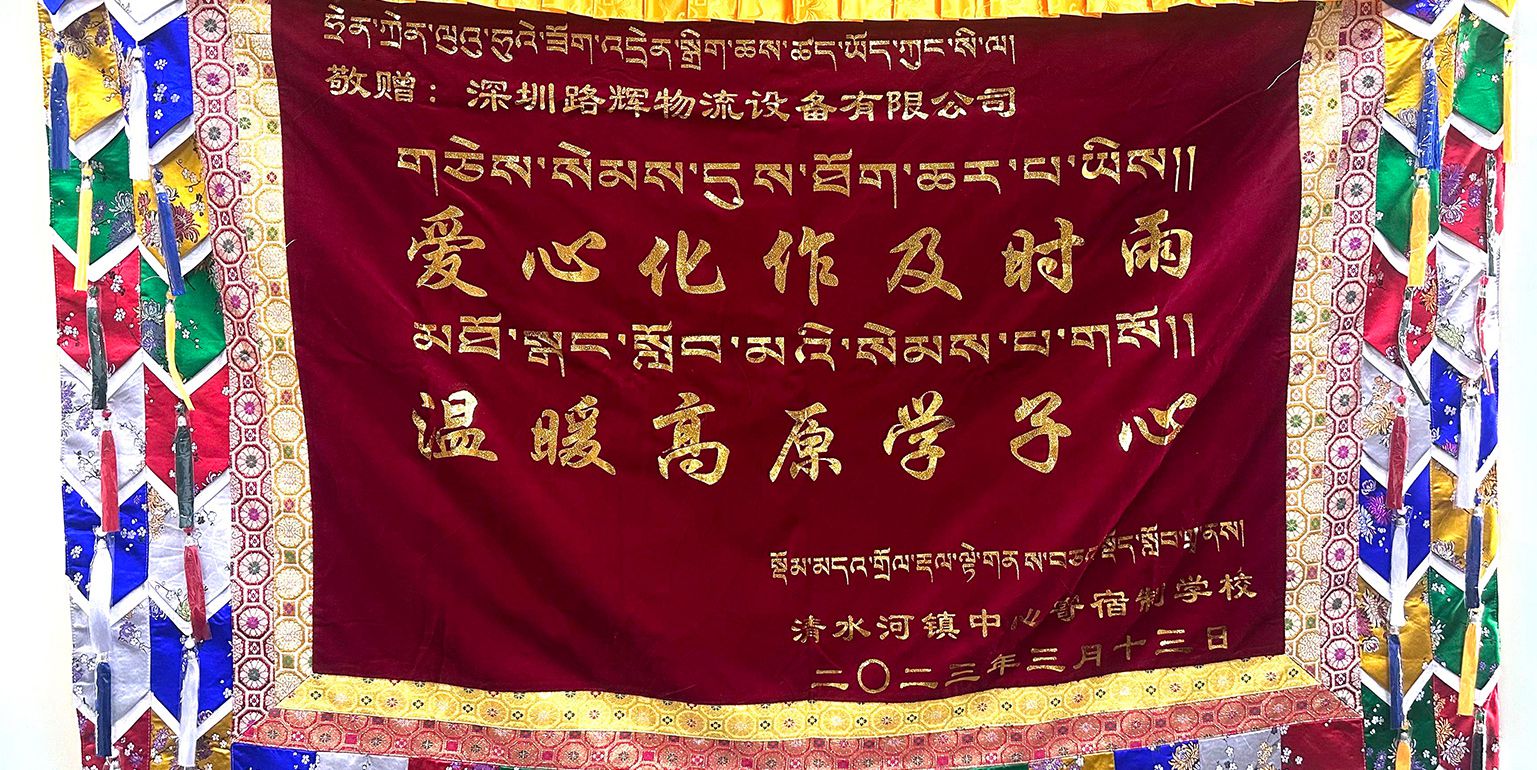 ཧྲེན་ཀྲེན་ལུའུ་ཧུའེ་ཟོག་འདྲེན་སྒྲིག་ཆས་ཚད་ཡོད་ཀུང་སི་ལ།
敬赠：深圳路辉物流设备有限公司
གཅེས་སེམས་དུས་ཐོག་ཆར་པ་ཡིས།།
爱心化作及时雨
མཐོ་སྒང་སློབ་མའི་སེམས་པ་གསོ།།
温暖高原学子心
清水河镇中心寄宿制学校
二〇二三年三月十三日